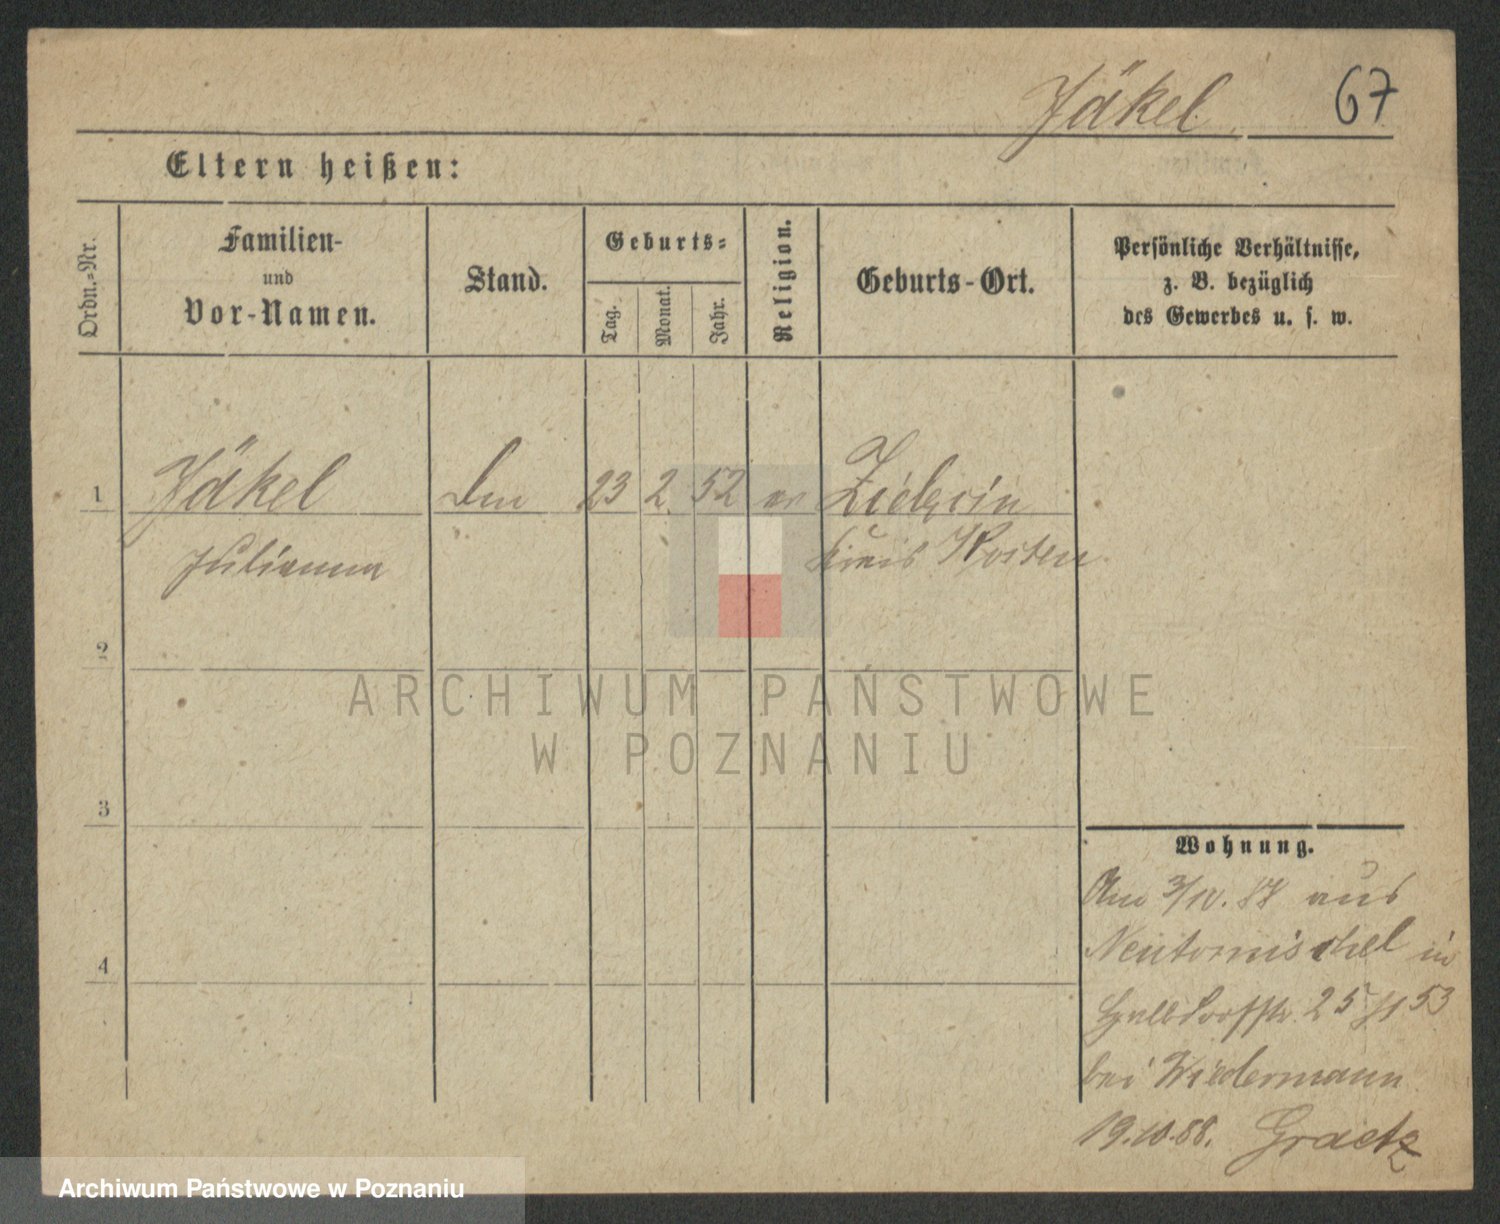 Jäkel 67
Eltern heißen:
Ordn.-Nr.
Familien-
und
Vor-Namen.
Stand.
Geburts-
Tag.
Monat.
Jahr.
Religion.
Geburts-Ort.
Persönliche Verhältnisse,
z. B. bezüglich
des Gewerbes u. s. w.
1 Jäkel 23 2 52 ev
Julianna Kreis Kosten
2
3
4
ARCHIWUM PAŃSTWOWE
W POZNANIU
Wohnung.
Am 3/10. 87 aus
Neutomischel in
Halbdorfstr. 25 53
bei Wiedermann
19.10.88. Graetz
Archiwum Państwowe w Poznaniu